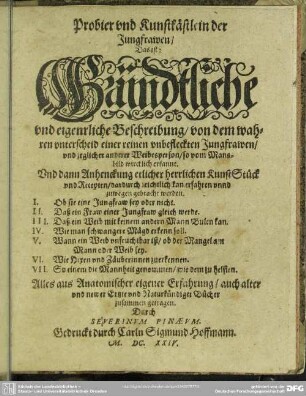 Probier vnd Kunstkästlein der
Jungfrawen/
Das ist:
Gründtliche
vnd eigentliche Beschreibung/ von dem wah-
ren vnterscheid einer reinen vnbefleckten Jungfrawen/
vnd jeglicher anderer Weibesperson/ so vom Mans-
bild
erkannt.
Vnd dann Anhenckung etlicher herrlichen KunstStück
vnd Recepten/ dardurch kan erfahren vnnd
zuwegen gebracht werden.
I. Ob sie eine Jungfraw sey oder nicht.
II. Daß ein Fraw einer Jungfraw gleich werde.
III. Daß ein Weib mit keinem andern Mann Bulen kan.
IV. Wie man schwangere Mägd erkenn soll.
V. Wann ein Weib vnfruchtbar ist/ ob der Mangel am
Mann oder Weib sey.
VI. Wie Hexen vnd Zäuberinnen zu erkennen.
VII. So einem die Mannheit genommen/ wie dem zu helffen.
Alles aus Anatomischer eigener Erfahrung/ auch alter
vnd newer Naturkündiger Bücher
zusammen getragen.
Durch
SEVERINVM PINÆVM.
Gedruckt durch Carln Sigmund Hoffmann.
M. DC. XXIV.